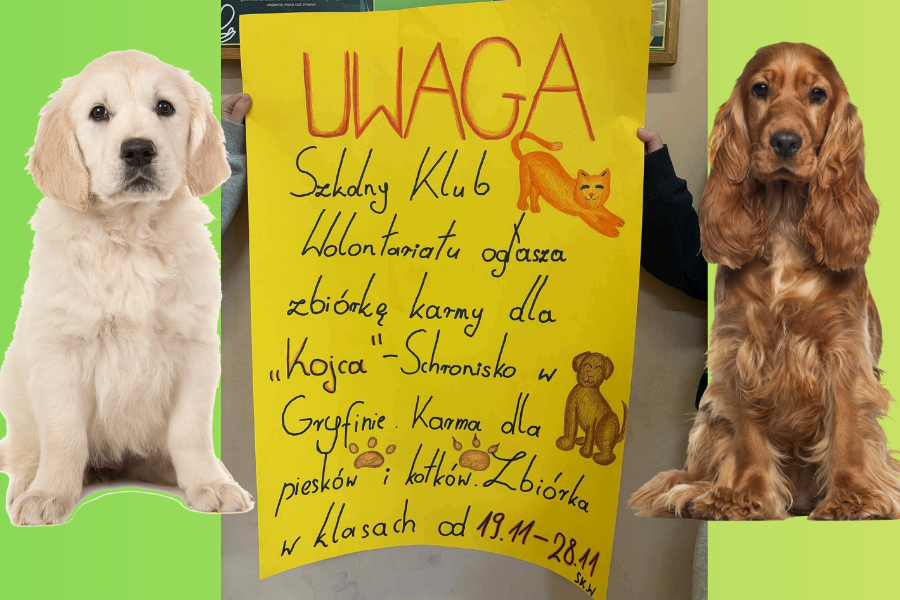 UWAGA
Szkolny Klub
Wolontariatu ogłasza
zbiórkę karmy dla
„Kojca"-Schronisko w
Gryfinie. Karma dla
piesków i kotków. Zbiórka
w klasach od 19.11-28.11
SKW